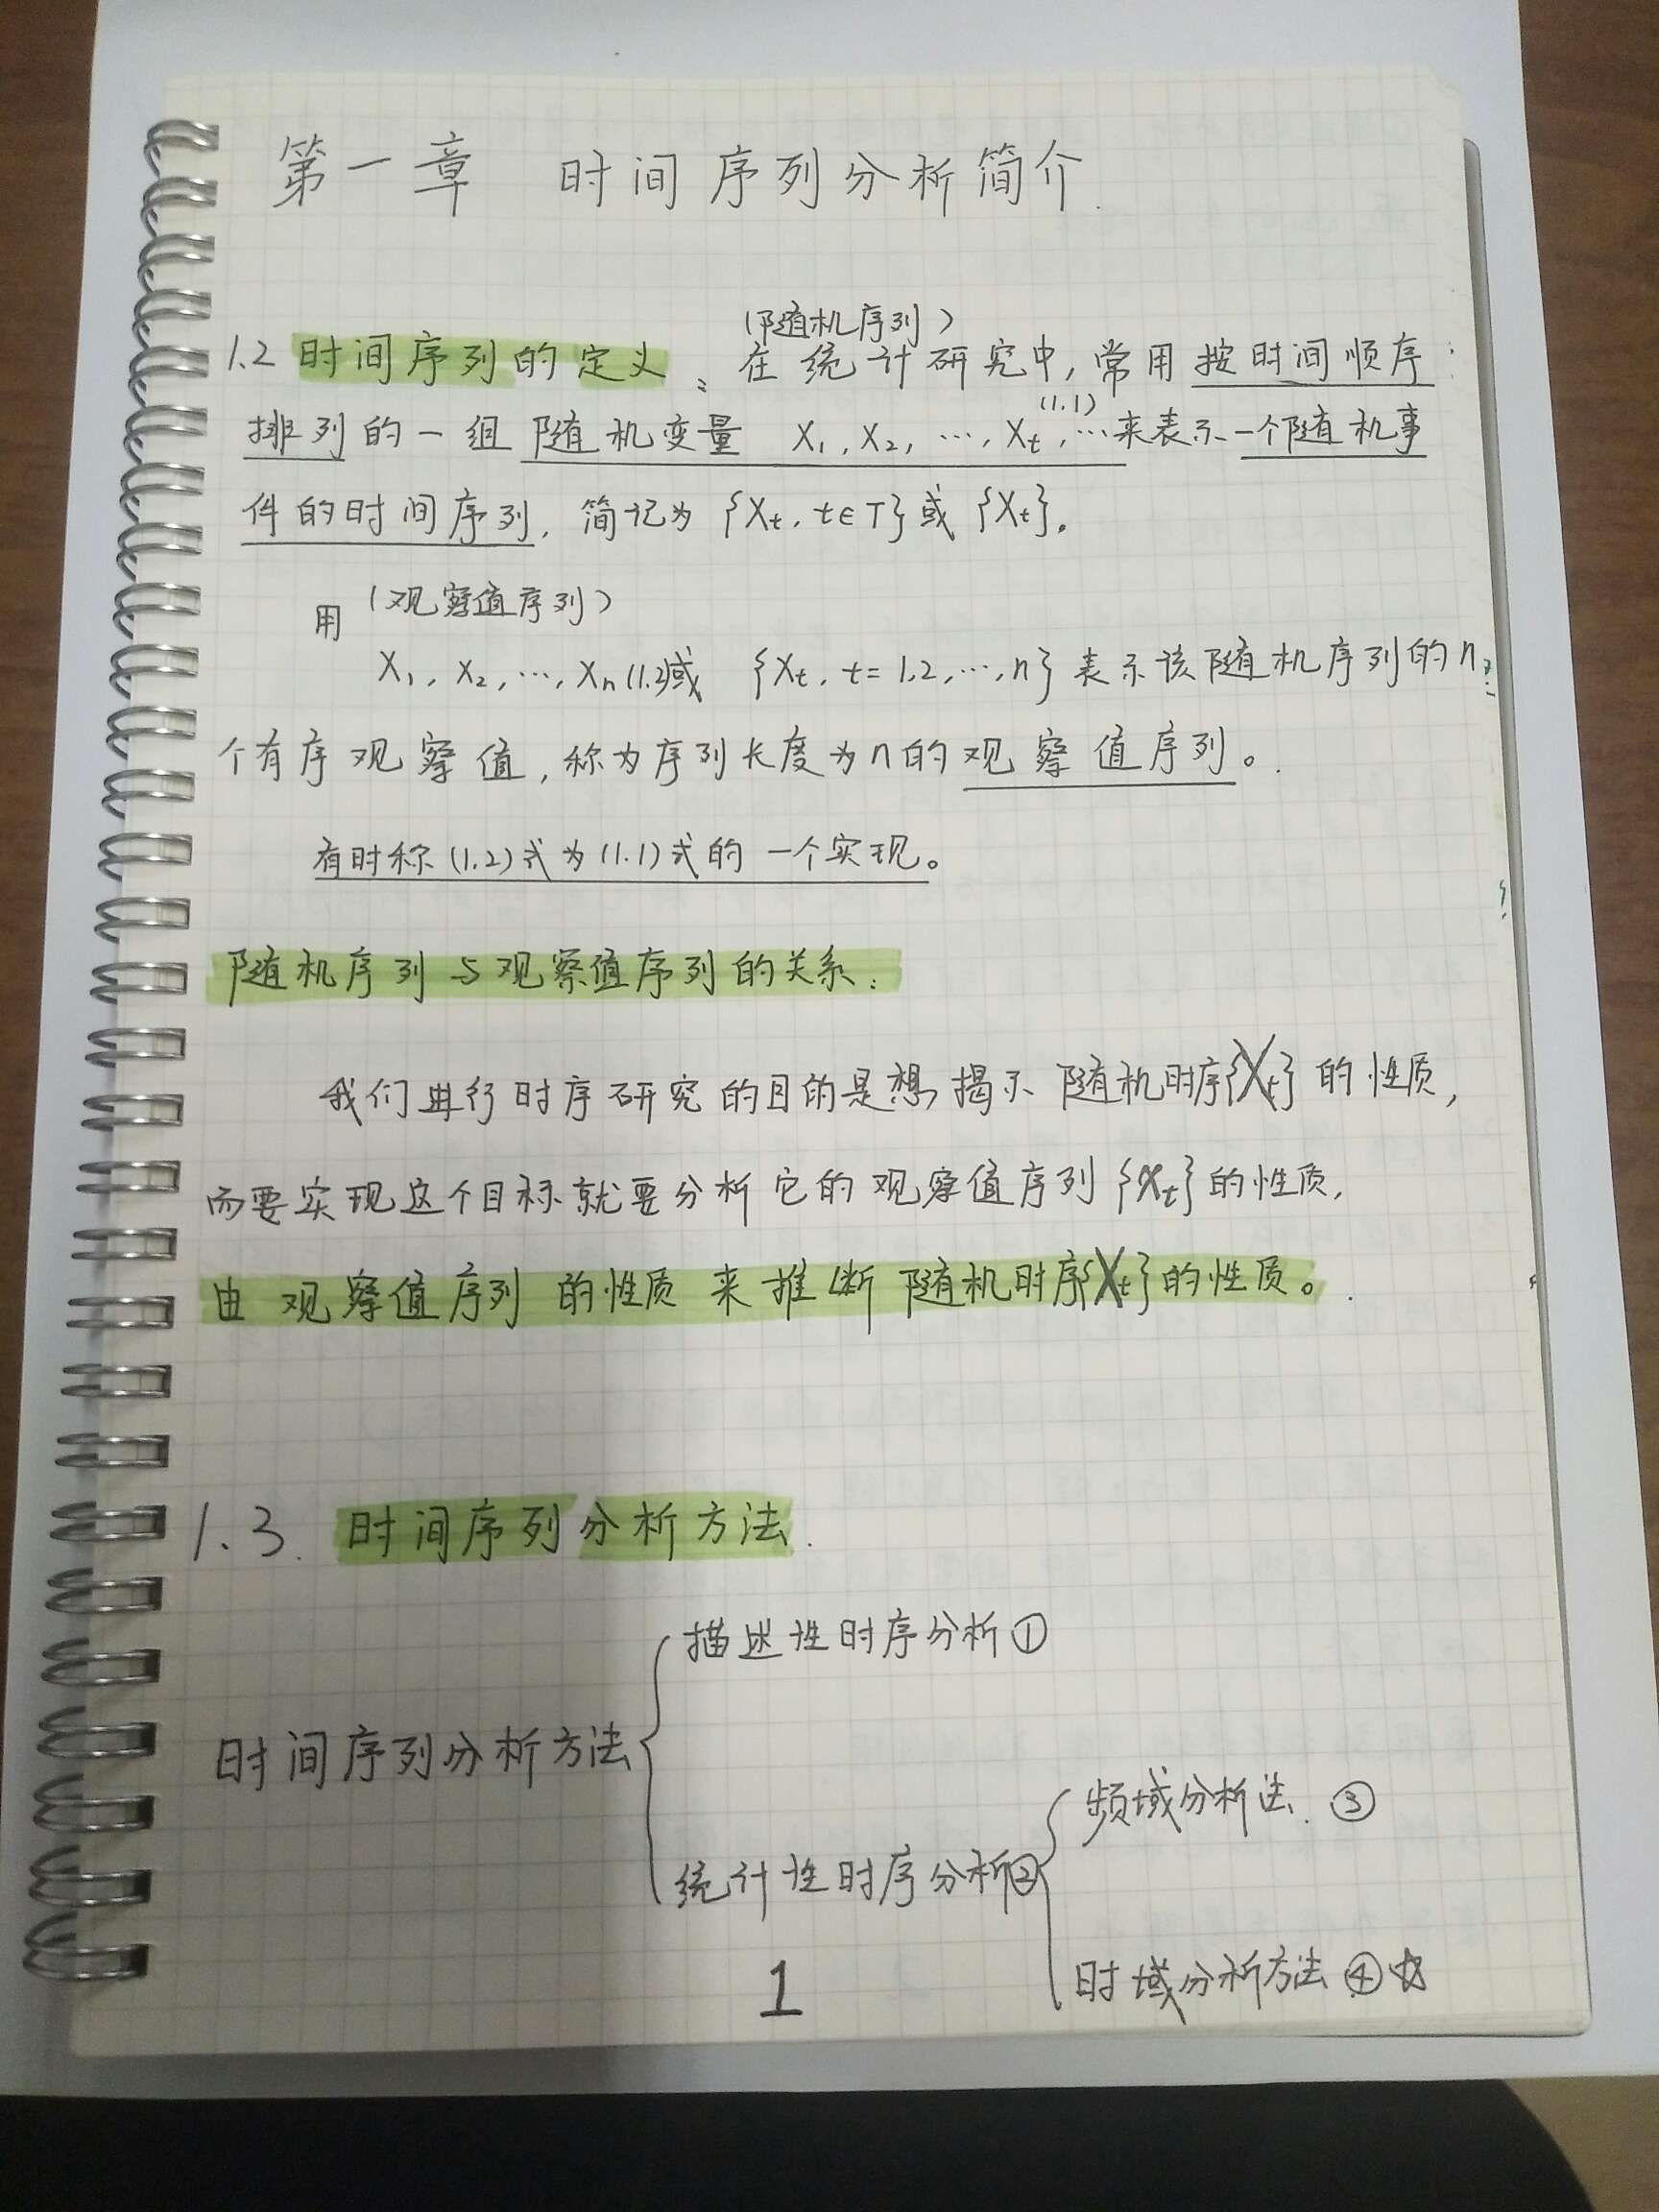 第一章 时间序列分析简介.
(随机序列)
1.2 时间序列的定义:在统计研究中,常用按时间顺序
(1.1)
排列的一组随机变量 X₁,X₂,…,Xt,…来表示一个随机事
件的时间序列,简记为{Xt,t∈T}或{Xt}。
(观察值序列)
用
X₁,X₂,…,Xn(1.2)或 {Xt,t=1,2,…,n}表示该随机序列的n
个有序观察值,称为序列长度为n的观察值序列。
有时称(1.2)式为(1.1)式的一个实现。
随机序列与观察值序列的关系:
我们进行时序研究的目的是想揭示随机时序{Xt}的性质,
而要实现这个目标就要分析它的观察值序列{xt}的性质,
由观察值序列的性质来推断随机时序{Xt}的性质。
1.3. 时间序列分析方法.
描述性时序分析①
时间序列分析方法
频域分析法.③
统计性时序分析②
时域分析方法④☆
1